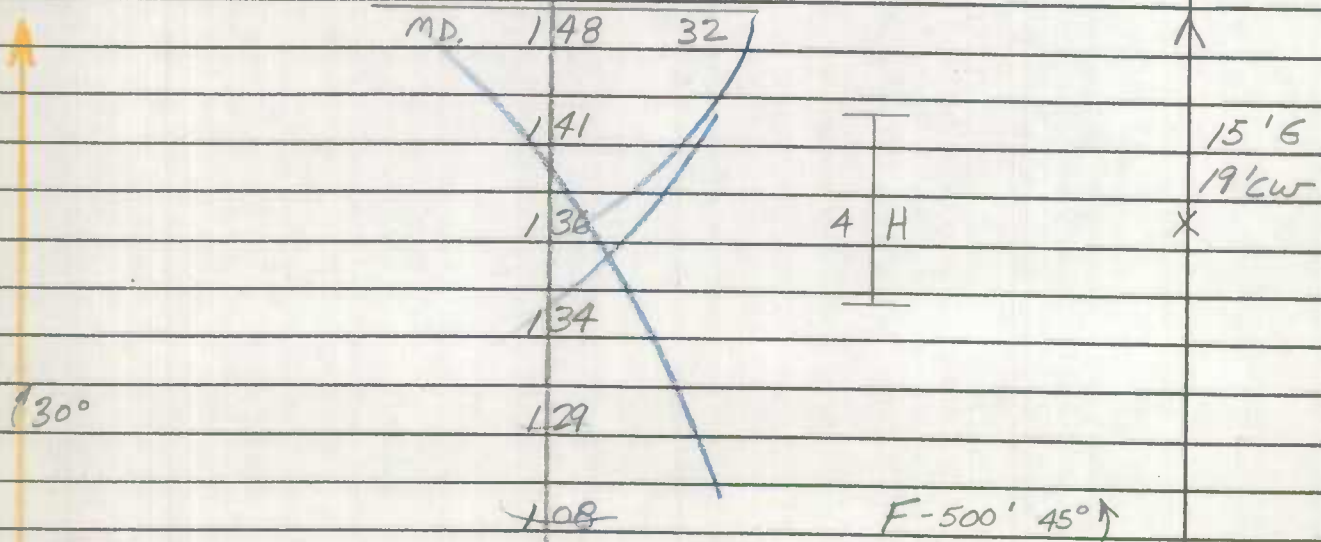 MD. 148 32
141
15' G
19' CW
136 4 H
134
30°
129
108 F-500' 45°